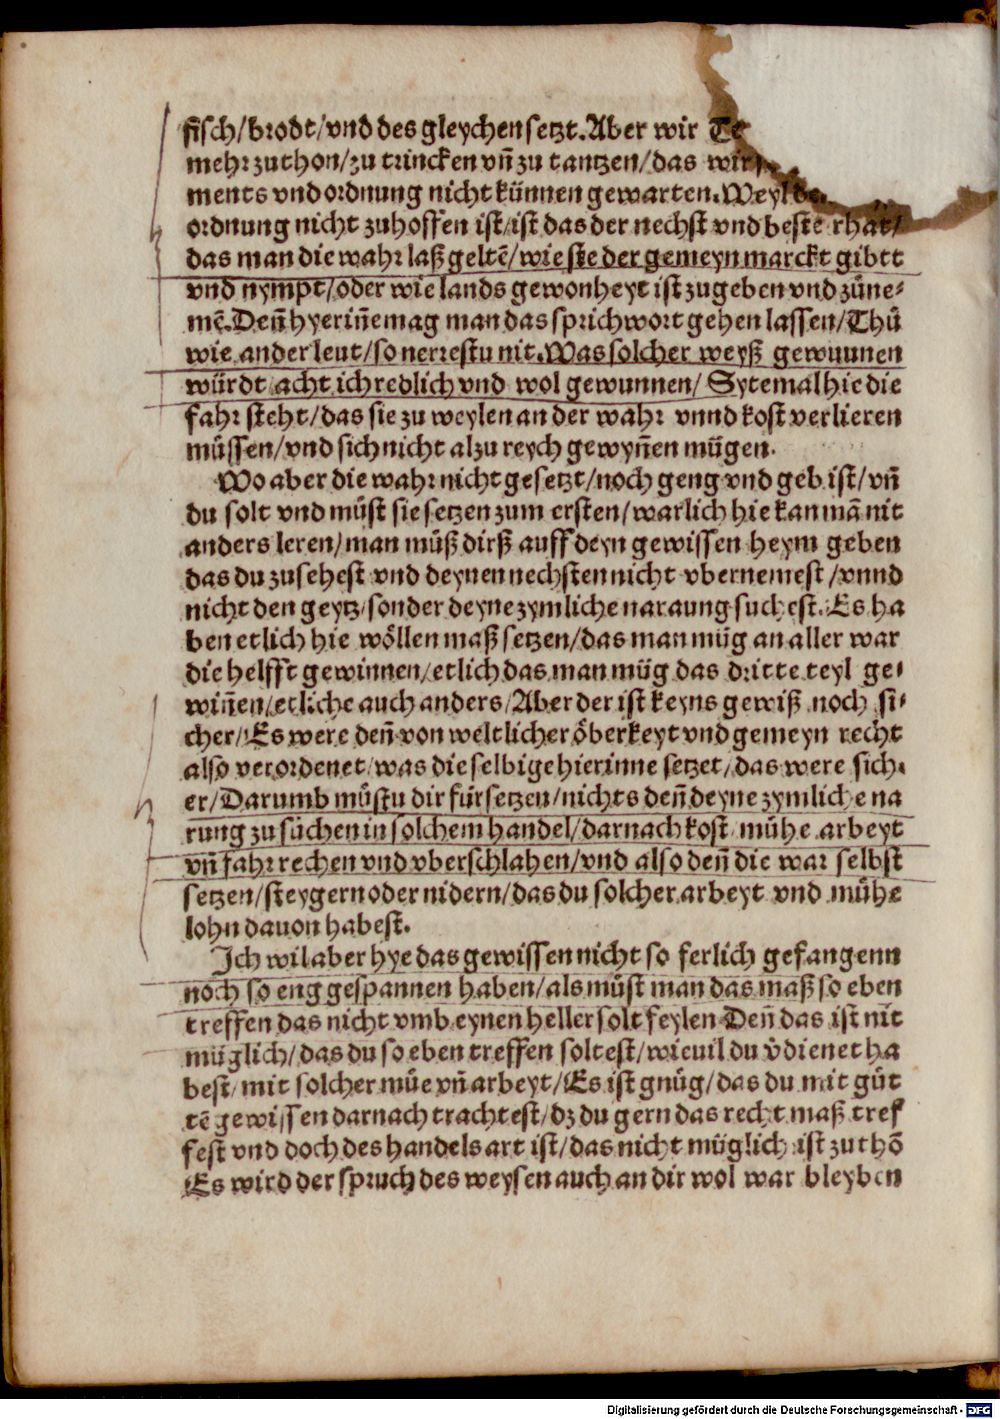 fisch/brodt/vnd des gleychen setzt. Aber wir
mehr zuthon/zu trincken vñ zu tantzen/das
ments vnd ordnung nicht künnen gewarten. Weyl
ordnung nicht zuhoffen ist/ist das der nechst vnd beste rhat/
das man die wahr laß geltẽ/wie sie der gemeyn marckt gibtt
vnd nympt/oder wie lands gewonheyt ist zugeben vnd zůne⸗
mẽ. Deñ hyeriñe mag man das sprichwort gehen lassen/Thů
wie ander leut/so nerrestu nit. Was solcher weyß gewuunen
würdt/acht ich redlich vnd wol gewunnen/Sytemal hie die
fahr steht/das sie zu weylen an der wahr vnnd kost verlieren
müssen/vnd sich nicht alzu reych gewyñen mügen.
Wo aber die wahr nicht gesetzt/noch geng vnd geb ist/vñ
du solt vnd můst sie setzen zum ersten/warlich hie kan mã nit
anders leren/man můß dirß auff deyn gewissen heym geben
das du zusehest vnd deynen nechsten nicht vbernemest/vnnd
nicht den geytz/sonder deyne zymliche naraung suchest. Es ha
ben etlich hie wöllen maß setzen/das man müg an aller war
die helfft gewinnen/etlich das man müg das dritte teyl ge⸗
wiñen/etliche auch anders/Aber der ist keyns gewiß noch si⸗
cher/Es were deñ von weltlicher öberkeyt vnd gemeyn recht
also verordenet/was die selbige hierinne setzet/das were sich⸗
er/Darumb můstu dir fürsetzen/nichts deñ deyne zymliche na
rung zu sůchen in solchem handel/darnach kost/mühe arbeyt
vñ fahr rechen vnd vberschlahen/vnd also deñ die war selbst
setzen/steygern oder nidern/das du solcher arbeyt vnd mühe
lohn dauon habest.
Ich wil aber hye das gewissen nicht so ferlich gefangenn
noch so eng gespannen haben/als můst man das maß so eben
treffen das nicht vmb eynen heller solt feylen Deñ das ist nit
müglich/das du so eben treffen soltest/wieuil du v̄dienet ha
best/mit solcher müe vñ arbeyt/Es ist gnůg/das du mit gůt
tẽ gewissen darnach trachtest/dz du gern das recht maß tref
fest vnd doch des handels art ist/das nicht müglich ist zuthõ
Es wird der spruch des weysen auch an dir wol war bleyben
Digitalisierung gefördert durch die Deutsche Forschungsgemeinschaft - DFG